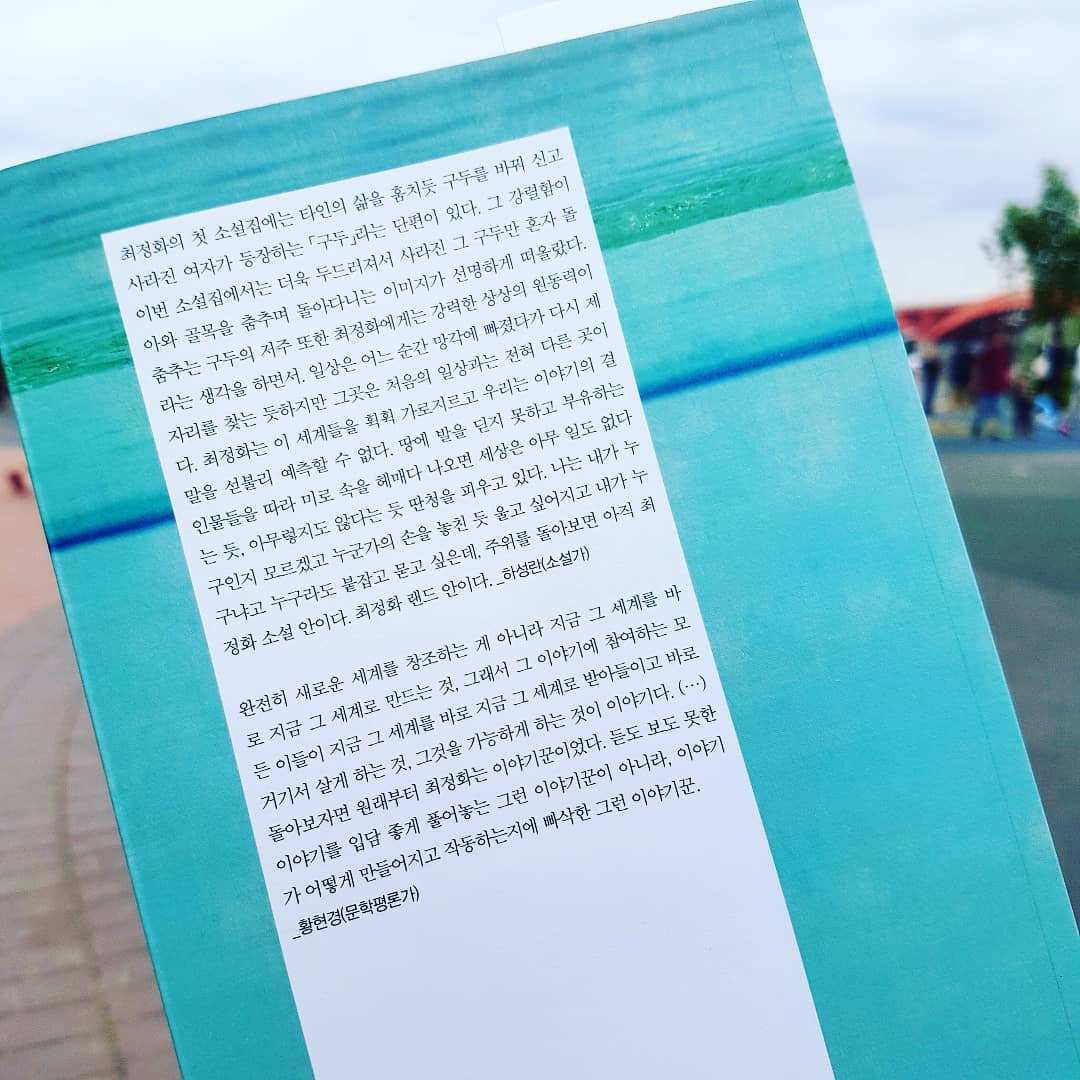 최정화의 첫 소설집에는 타인의 삶을 훔치듯 구두를 바꿔 신고
사라진 여자가 등장하는 「구두」라는 단편이 있다. 그 강렬함이
이번 소설집에서는 더욱 두드러져서 사라진 그 구두만 혼자 돌
아와 골목을 춤추며 돌아다니는 이미지가 선명하게 떠올랐다.
춤추는 구두의 저주 또한 최정화에게는 강력한 상상의 원동력이
라는 생각을 하면서. 일상은 어느 순간 망각에 빠졌다가 다시 제
자리를 찾는 듯하지만 그곳은 처음의 일상과는 전혀 다른 곳이
다. 최정화는 이 세계들을 획획 가로지르고 우리는 이야기의 결
말을 섣불리 예측할 수 없다. 땅에 발을 딛지 못하고 부유하는
인물들을 따라 미로 속을 헤매다 나오면 세상은 아무 일도 없다
는 듯, 아무렇지도 않다는 듯 딴청을 피우고 있다. 나는 내가 누
구인지 모르겠고 누군가의 손을 놓친 듯 울고 싶어지고 내가 누
구냐고 누구라도 붙잡고 묻고 싶은데, 주위를 돌아보면 아직 최
정화 소설 안이다. 최정화 랜드 안이다. _하성란(소설가)
완전히 새로운 세계를 창조하는 게 아니라 지금 그 세계를 바
로 지금 그 세계로 만드는 것, 그래서 그 이야기에 참여하는 모
든 이들이 지금 그 세계를 바로 지금 그 세계로 받아들이고 바로
거기서 살게 하는 것, 그것을 가능하게 하는 것이 이야기다. (…)
돌아보자면 원래부터 최정화는 이야기꾼이었다. 듣도 보도 못한
이야기를 입담 좋게 풀어놓는 그런 이야기꾼이 아니라, 이야기
가 어떻게 만들어지고 작동하는지에 빠삭한 그런 이야기꾼.
_황현경(문학평론가)